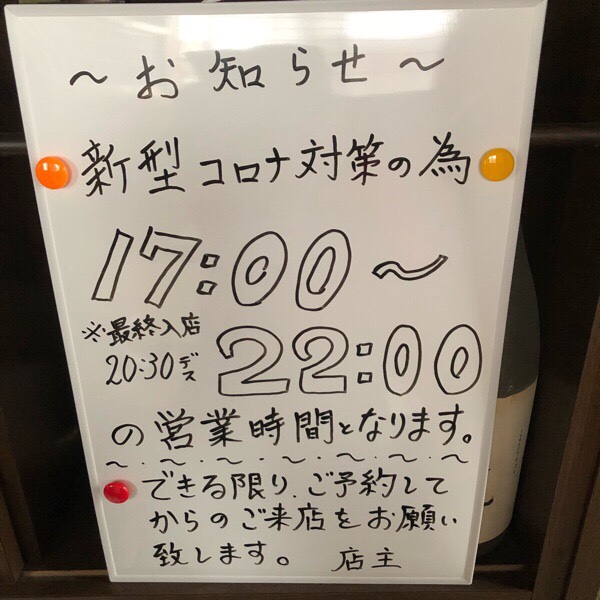 ～お知らせ～
新型コロナ対策の為
17:00～
※最終入店
20:30デス
22:00
の営業時間となります。
～．～．～．～．～．～．～
できる限り、ご予約して
からのご来店をお願い
致します。 店主